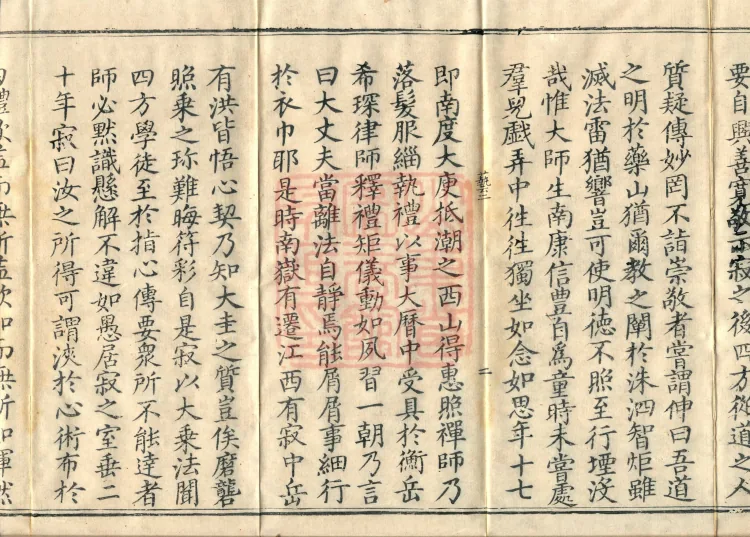 要自興善寬敬示寂之後四方衜道之人
質疑傳妙罔不詣崇敬者嘗謂伸曰吾道
之明於藥山猶爾教之闡於洙泗智炬雖
滅法雷猶響豈可使明徳不照至行堙沒
哉惟大師生南康信豊自爲童時未嘗處
羣兒戲弄中往往獨坐如念如思年十七
藝二 二
即南度大庾抵潮之西山得惠照禪師乃
落髮服緇執禮以事大曆中受具於衡岳
希琛律師釋禮矩儀動如夙習一朝乃言
曰大丈夫當離法自靜焉能屑屑事細行
於衣巾耶是時南嶽有遷江西有寂中岳
有洪皆悟心契乃知大圭之質豈俟磨礱
照乘之珎難晦符彩自是寂以大乘法聞
四方學徒至於指心傳要衆所不能達者
師必默識懸解不違如愚居寂之室垂二
十年寂曰汝之所得可謂浹於心術布於